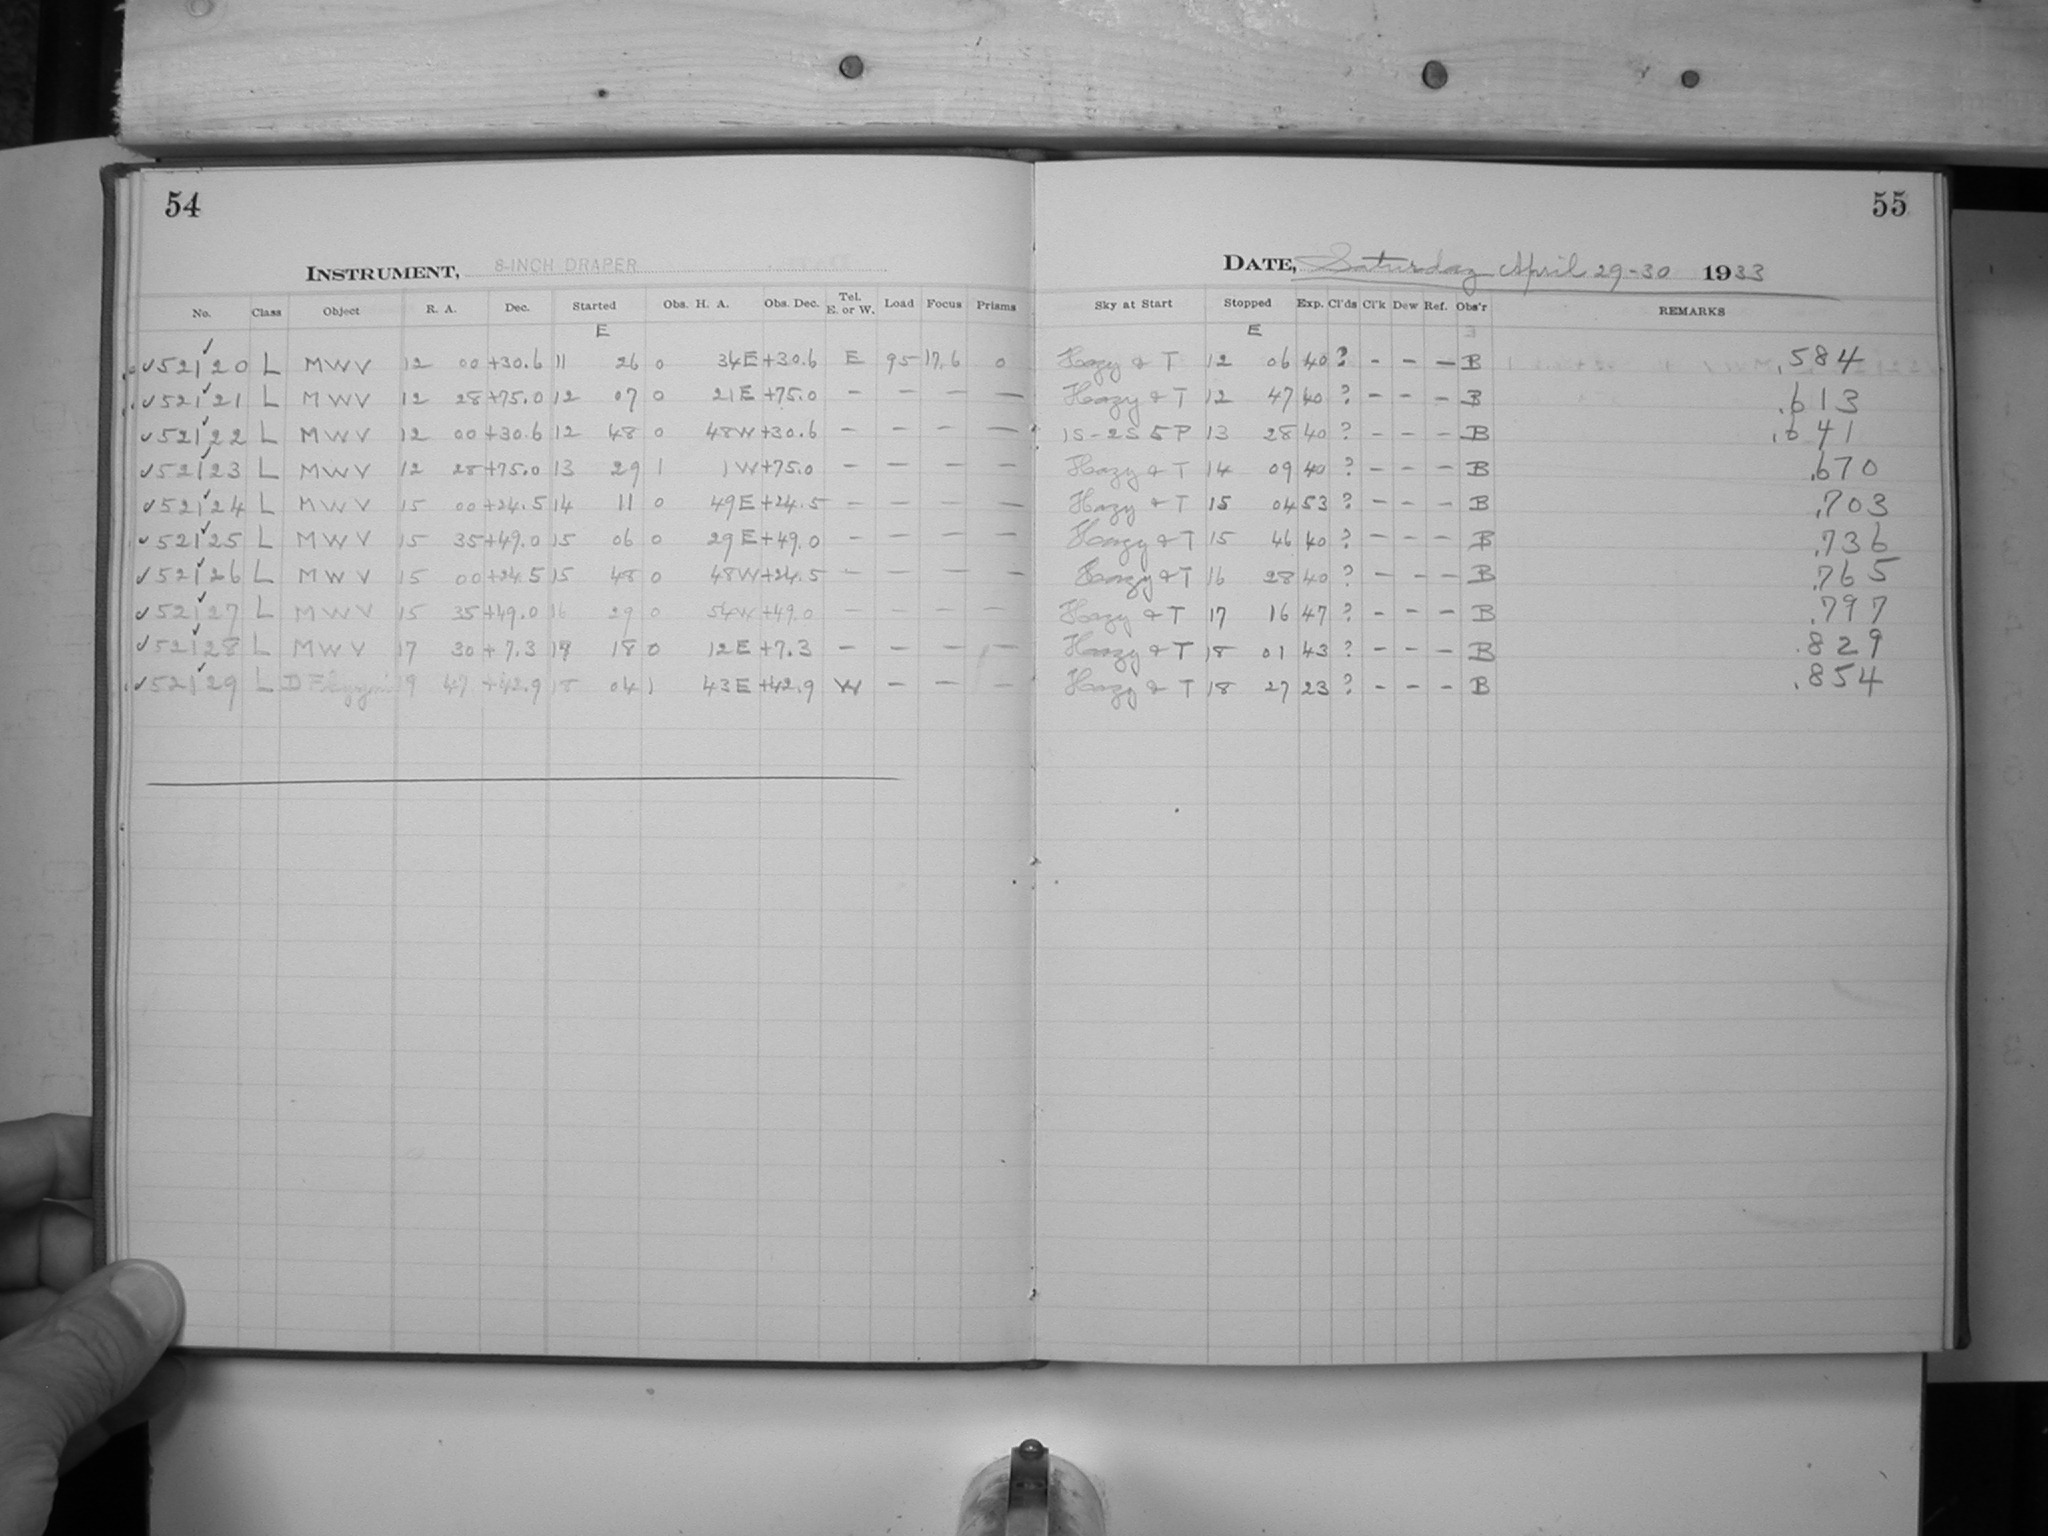 54
INSTRUMENT, 8-INCH DRAPER
No. Class Object R. A. Dec. Started Obs. H. A. Obs. Dec. Tel. E. or W. Load Focus Prisms
E
✓52120 L MWV 12 00 +30.6 11 26 0 34E +30.6 E 95 17.6 0
✓52121 L MWV 12 28 +75.0 12 07 0 21E +75.0 – – – –
✓52122 L MWV 12 00 +30.6 12 48 0 48W +30.6 – – – –
✓52123 L MWV 12 28 +75.0 13 29 1 1W +75.0 – – – –
✓52124 L MWV 15 00 +24.5 14 11 0 49E +24.5 – – – –
✓52125 L MWV 15 35 +49.0 15 06 0 29E +49.0 – – – –
✓52126 L MWV 15 00 +24.5 15 48 0 48W +24.5 – – – –
✓52127 L MWV 15 35 +49.0 16 29 0 54W +49.0 – – – –
✓52128 L MWV 17 30 +7.3 18 0 12E +7.3 – – – –
✓52129 L 19 47 +42.9 18 04 1 43E +42.9 W – – –
55
DATE, Saturday April 29-30 1933
Sky at Start Stopped Exp. Cl'ds Cl'k Dew Ref. Obs'r REMARKS
E
Hazy & T 12 06 40 ? – – – B .584
Hazy & T 12 47 40 ? – – – B .613
1S-2S 5P 13 28 40 ? – – – B .641
Hazy & T 14 09 40 ? – – – B .670
Hazy & T 15 04 53 ? – – – B .703
Hazy & T 15 46 40 ? – – – B .736
Hazy & T 16 28 40 ? – – – B .765
Hazy & T 17 16 47 ? – – – B .797
Hazy & T 18 01 43 ? – – – B .829
Hazy & T 18 27 23 ? – – – B .854